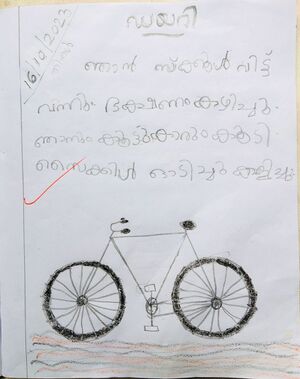 ഡയറി
16/10/2023
തിങ്കൾ
ഞാൻ സ്കൂൾ വിട്ട്
വന്നു. ഭക്ഷണം കഴിച്ചു.
ഞാനും കൂട്ടുകാരും കൂടി
സൈക്കിൾ ഓടിച്ചു കളിച്ചു.